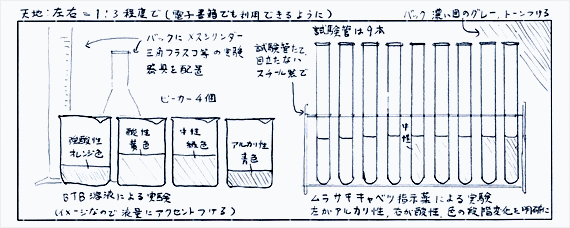 天地:左右=1:3程度で(電子書籍でも利用できるように)
バック 濃い目のグレー、トーンつける
バックにメスシリンダー
三角フラスコ等の実験
器具を配置
ビーカー4個
強酸性
オレンジ色
酸性
黄色
中性
緑色
アルカリ性
青色
BTB溶液による実験
(イメージなので液量にアクセントつける)
試験管は9本
試験管たて、
目立たない
スチール製で
中性
ムラサキキャベツ指示薬による実験
左がアルカリ性、右が酸性、色の段階変化を明確に